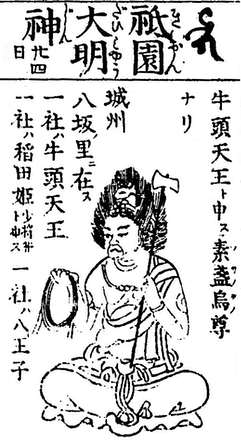 祇園
ぎをん
大明
だいみやう
神
じん
廿四
日
牛頭天王ト申ス素盞烏尊
ナリ
城州
八坂里ニ在ス
一社ハ牛頭天王
一社ハ稲田姫少将井ト申ス 一社ハ八王子